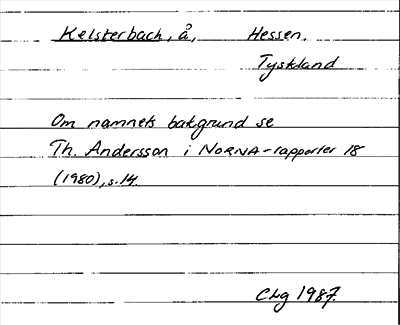 Kelsterbach, å, Hessen,
Tyskland
Om namnets bakgrund se
Th. Andersson i NORNA-rapporter 18
(1980), s. 14.
CLg 1987.